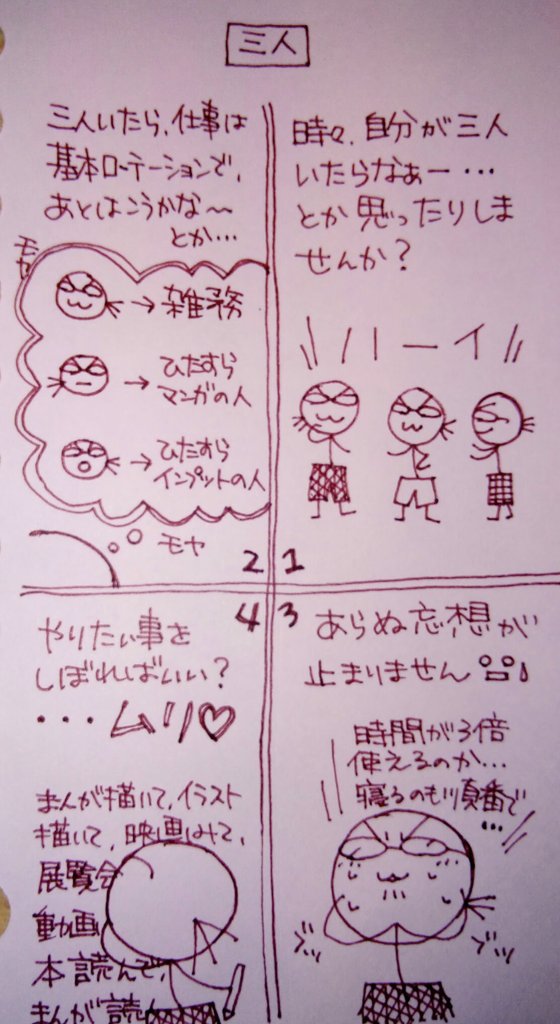 三人
時々、自分が三人
いたらなぁー…
とか思ったりしま
せんか？
ハーイ
1
三人いたら、仕事は
基本ローテーションで、
あとはこうかな〜
とか…
モヤ
→雑務
→ひたすら
マンガの人
→ひたすら
インプットの人
モヤ
2
3
あらぬ妄想が
止まりません
時間が3倍
使えるのか…
寝るのも順番で
…
ブツ
ブツ
4
やりたい事を
しぼればいい？
・・・ムリ♡
まんが描いて、イラスト
描いて、映画みて、
展覧会
動画
本読んで、
まんが読